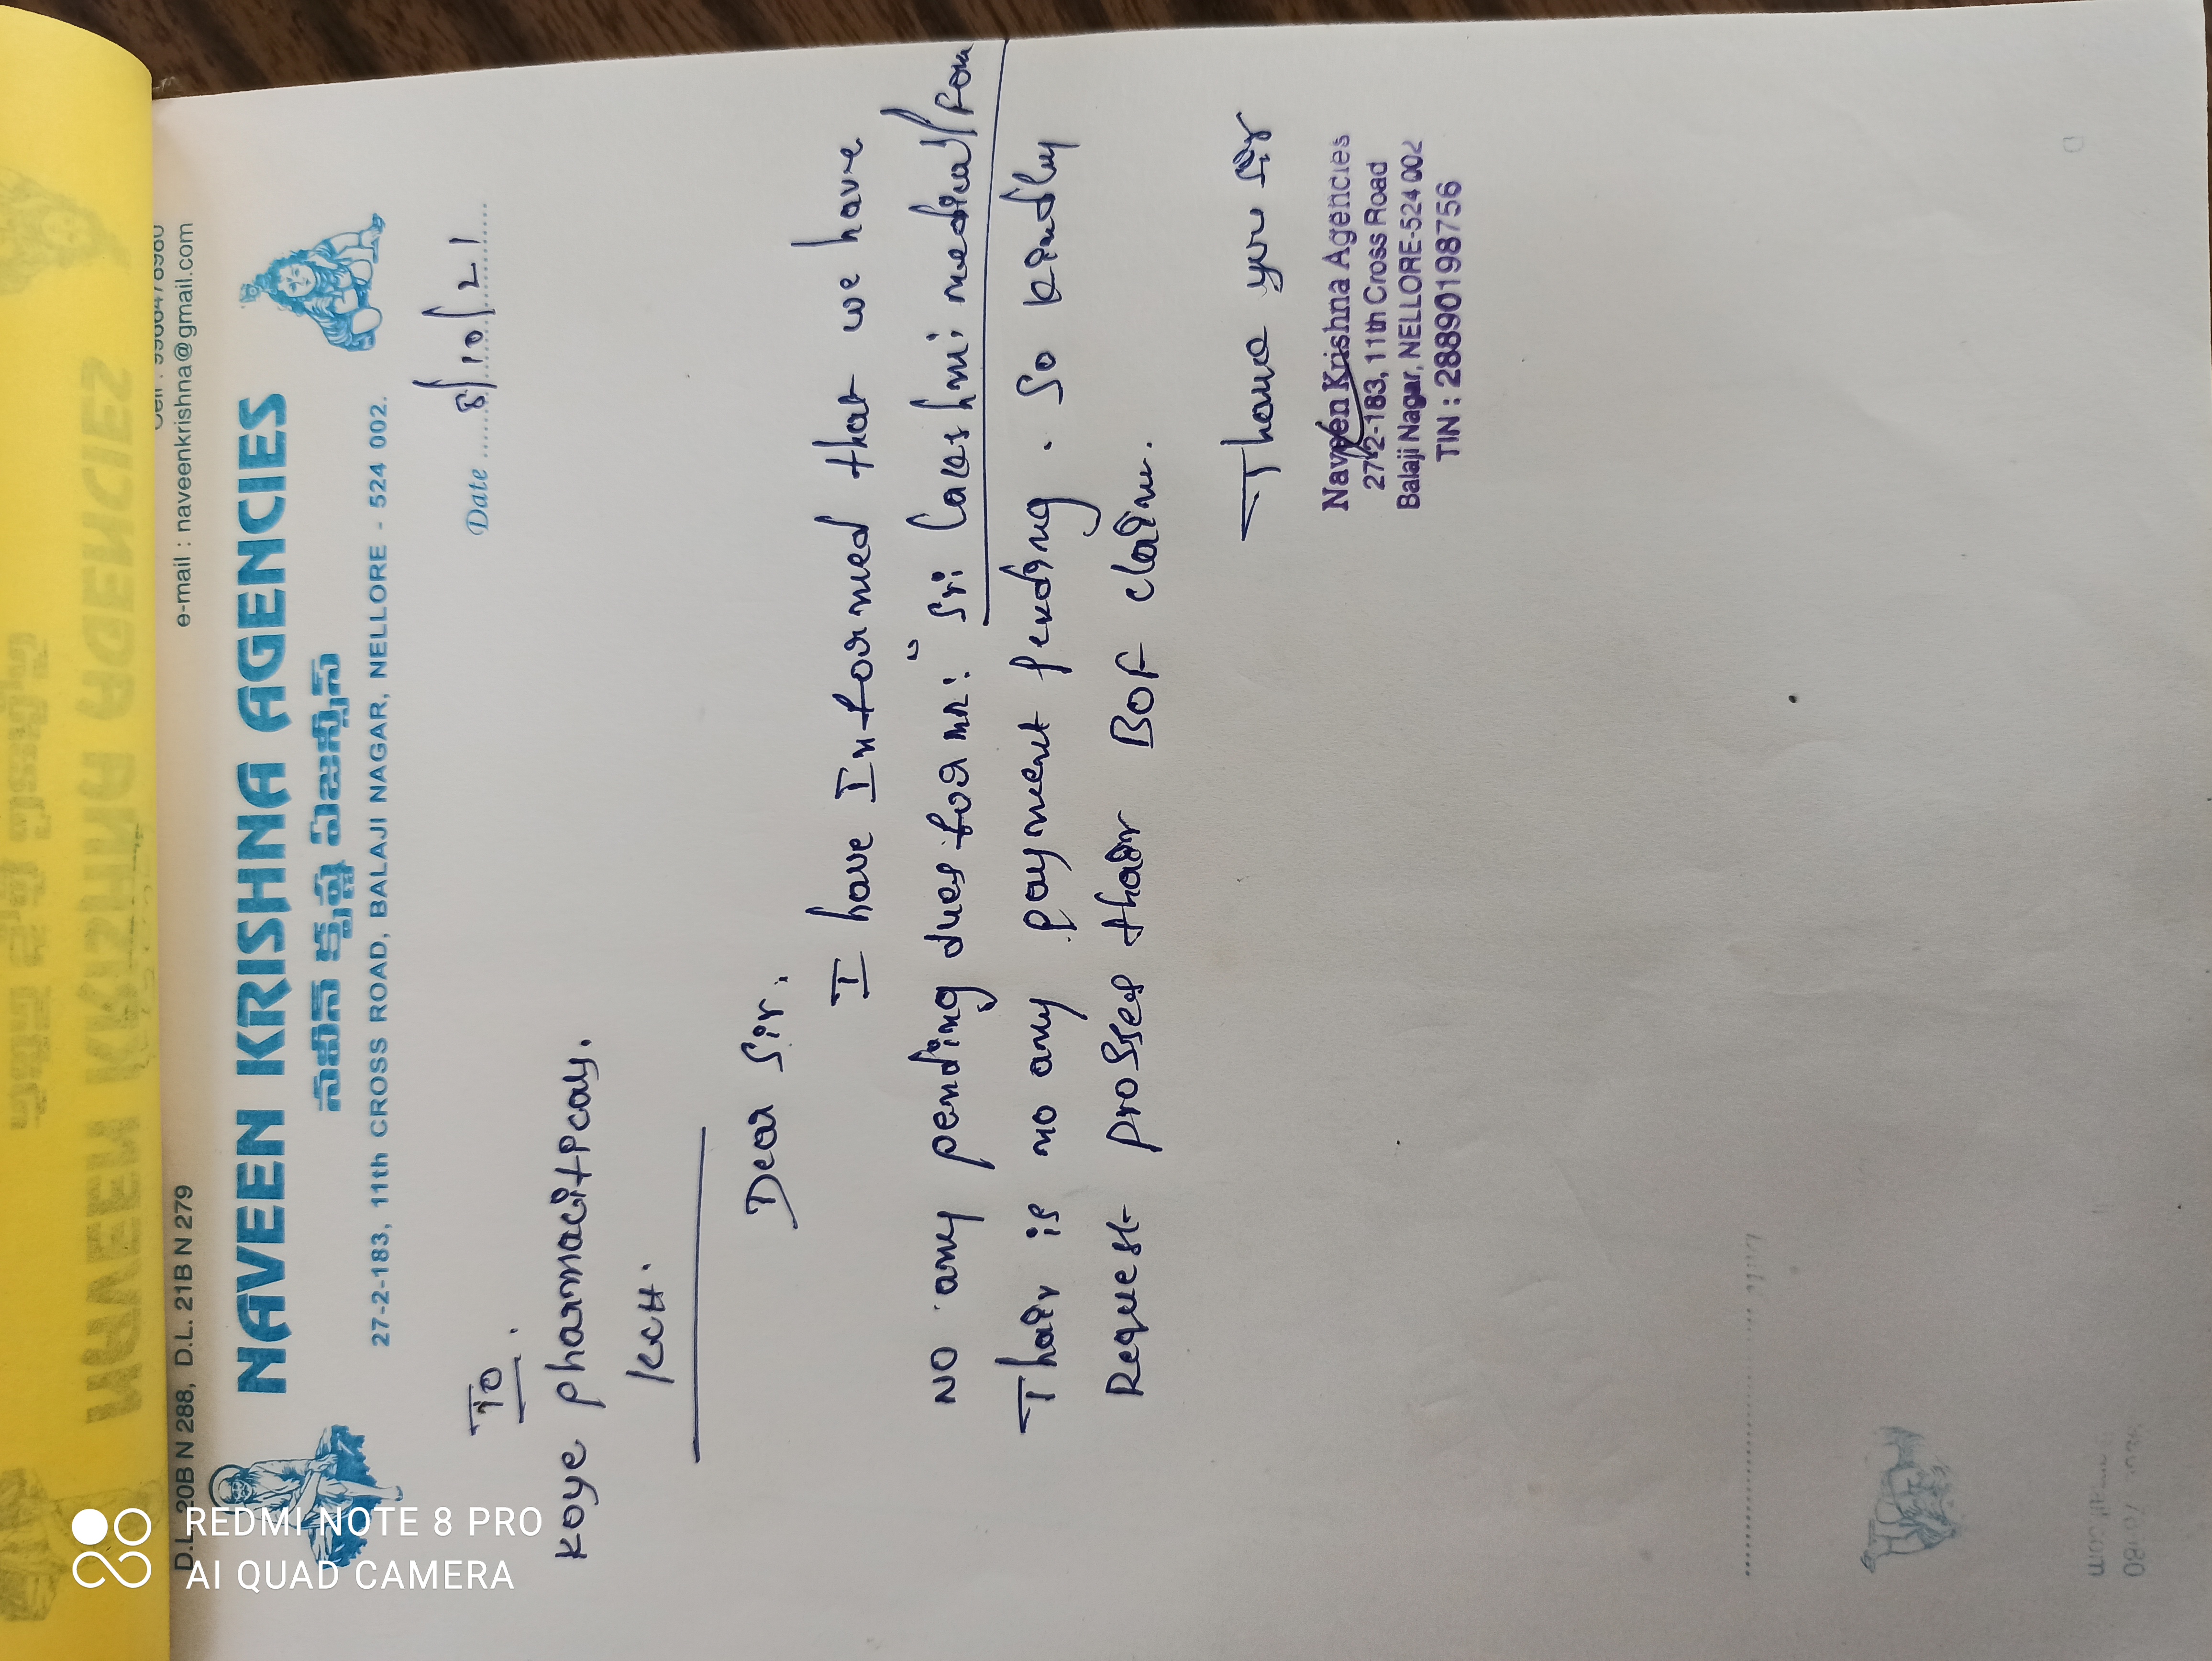 D.L. 20B N 288, D.L. 21B N 279
e-mail : naveenkrishna@gmail.com
NAVEEN KRISHNA AGENCIES
నవీన్ క్రిష్ణ ఏజన్సీస్
27-2-183, 11th CROSS ROAD, BALAJI NAGAR, NELLORE - 524 002.
Date 8/10/21
To.
Koye pharmacitical.
KCH.
Dear Sir.
I have Informed that we have
NO any pending dues for mr: "Sri Lakshmi medical/
Thair is no any payment pending. So kindly
Request prosses thair BOF claim.
Thank you Sir
Naveen Krishna Agencies
27-2-183, 11th Cross Road
Balaji Nagar, NELLORE-524 002
TIN : 28890198756
REDMI NOTE 8 PRO
AI QUAD CAMERA